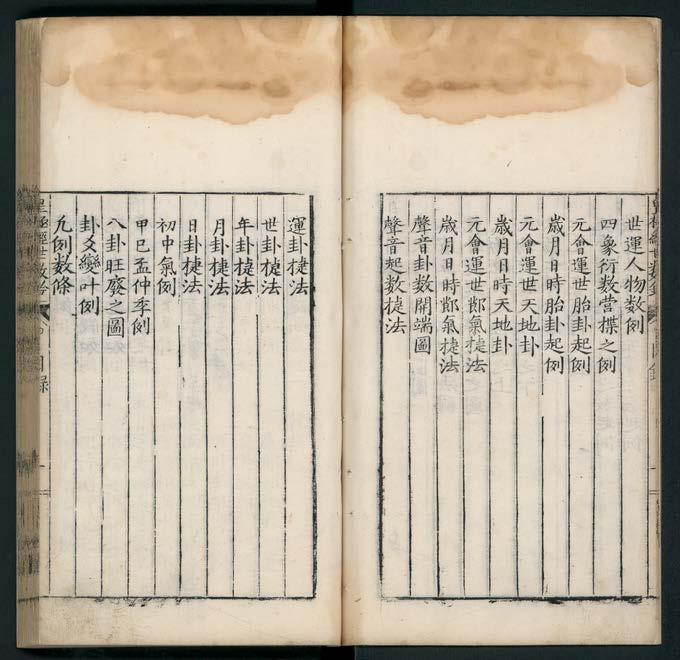 世運人物數例
四象衍数营揲之例
元會運世胎卦起例
歲月日時胎卦起例
元會運世天地卦
歲月日時天地卦
元會運世節氣捷法
歲月日時節氣捷法
聲音卦數開端圖
聲音起數捷法
運卦捷法
世卦捷法
年卦捷法
月卦捷法
日卦捷法
初中氣例
甲巳孟仲季例
八卦旺廢之圖
卦爻變叶例
凡例数條
皇極經世数
目錄